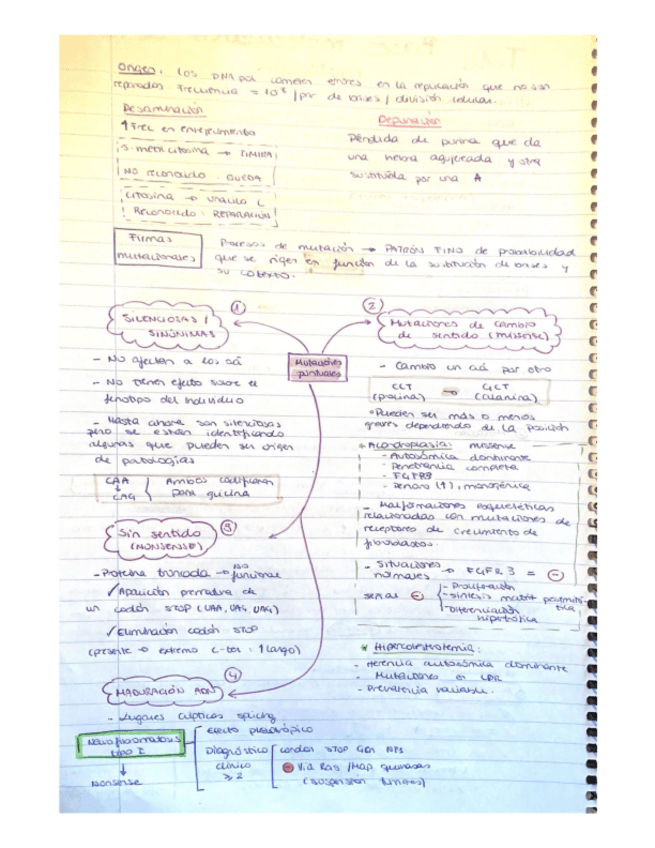 Origen: los DNA pol cometen errores en la replicación que no son
reparados Frecuencia = 10 /par de bases / división celular.
Desaminación
↑ Frec en envejecimiento
5-metilcitosina → TIMINA
NO reconocido: QUEDA
Citosina → Uracilo
Reconocido: REPARACIÓN
Depurinación
Pérdida de purina que da
una hebra agujereada y otra
sustituida por una A
Firmas
mutacionales
Procesos de mutación → PATRÓN FINO de probabilidad
que se rigen en función de la sustitución de bases y
su contexto.
Mutaciones
puntuales
①
SILENCIOSAS /
SINÓNIMAS
- No afectan a los aá
- No tienen efecto sobre el
fenotipo del individuo
- Hasta ahora son silenciosas
pero se están identificando
algunas que pueden ser origen
de patologías
CAA
↓
CAG
Ambos codifican
para
②
Mutaciones de cambio
de sentido (missense)
- Cambio un aá por otro
CCT → GCT
(prolina) (alanina)
Pueden ser más o menos
graves dependiendo de la posición
* Acondroplasia: missense
- Autosómica dominante
- Penetrancia completa
- FGFR3
- (↑), monogénica
- Malformaciones esqueléticas
relacionadas con mutaciones de
receptores de crecimiento de
fibroblastos.
- Situaciones
normales → FGFR 3 = ⊖
señal ⊖
- Proliferación
- síntesis matriz
- Diferenciación
hipertrófica
* Hipercolesterolemia:
- Herencia autosómica dominante
- Mutaciones en LDLR
- Prevalencia variable.
③
Sin sentido
(NONSENSE)
- Proteína truncada → NO
funcional
✓ Aparición prematura de
un codón STOP (UAA, UAG, UAG)
✓ Eliminación codón STOP
(presente → extremo C-ter: ↑ largo)
④
MADURACIÓN ARN
- Lugares crípticos splicing
Neurofibromatosis
tipo I
↓
Nonsense
Efecto pleiotrópico
Diagnóstico
clínico
≥ 2
codón STOP Gen NF1
⊖ Vía Ras / Map quinasas
(supresión tumores)